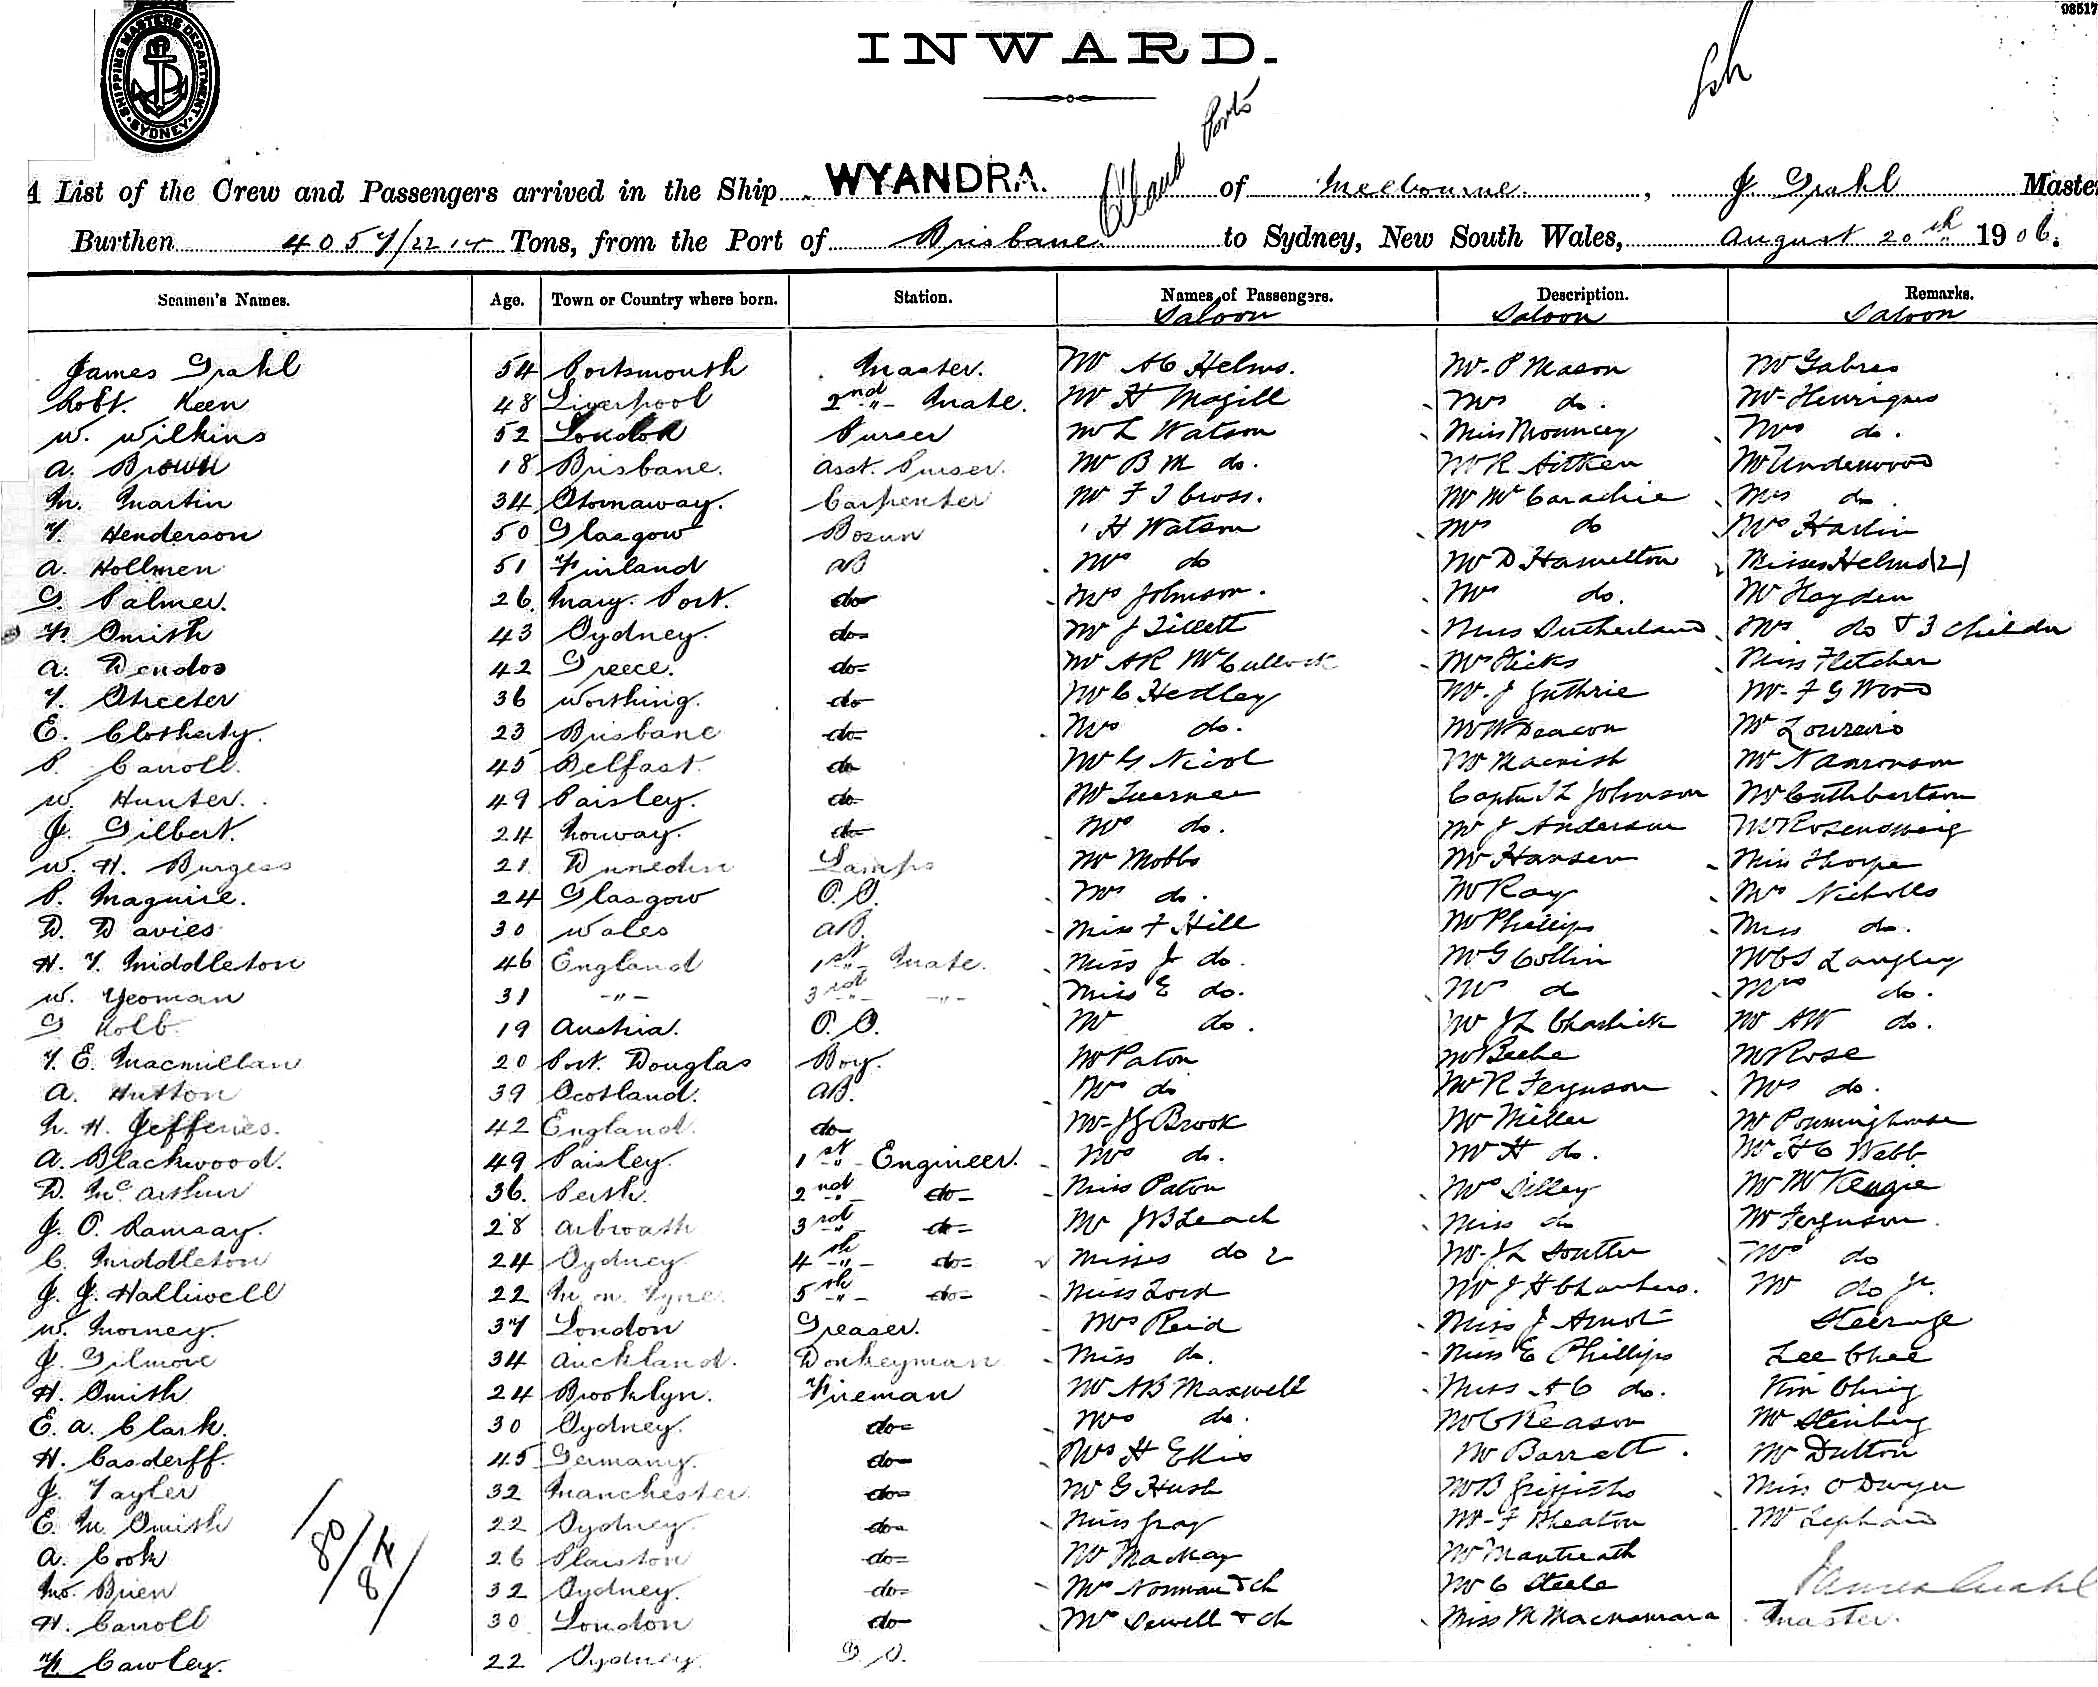 98517
INWARD.
SHIPPING MASTERS DEPARTMENT
SYDNEY
A List of the Crew and Passengers arrived in the Ship WYANDRA. of Melbourne, J. Grahl Maste
Burthen 4057/2214 Tons, from the Port of Brisbane to Sydney, New South Wales, August 20th 1906.
Seamen's Names. Age. Town or Country where born. Station. Names of Passengers. Description. Remarks.
Saloon Saloon Saloon
James Grahl 54 Portsmouth Master. Mr A C Helms. Mr P Mason Mr Gabres
Robt. Keen 48 Liverpool 2nd Mate. Mr H Magill Mrs do. Mr Henriques
W. Wilkins 52 London Purser Mr L Watson Miss Mouncey Mrs do.
A. Brown 18 Brisbane. Asst. Purser. Mr B M do. Mr R Aitken Mr Underwood
M. Martin 34 Carpenter Mr F J Cross. Mr Mrs do.
T. Henderson 50 Glasgow Bosun H Watson Mrs do Mrs Harlin
A. Hollmen 51 Finland AB Mrs do Mr D Hamilton Misses Helms (2)
G. Palmer. 26. Mary. Port. do Mrs Johnson. Mrs do. Mr Hayden
F. Smith 43 Sydney. do Mr J Tillett Miss Sutherland Mrs do & 3 childn
A. Dendos 42 Greece. do Mr A R McCulloch Mrs Hicks Miss Fletcher
T. Streeter 36 Worthing. do Mr C Hedley Mr J Guthrie Mr F G Wood
E. Clotherty. 23 Brisbane do Mrs do. Mr W Deacon Mr Loureiro
P. Carroll. 45 Belfast. do Mr G Nicol Mr Macnish Mr N Aaronson
W. Hunter. 49 Paisley. do Mr Turner Captn T L Johnson Mr Cuthbertson
J. Gilbert. 24 Norway. do Mrs do. Mr J Anderson Mr Rosendsweig
W. H. Burgess 21 Dunedin Lamps Mr Mobbs Mr Hansen Miss Thorpe
P. Maguire. 24 Glasgow O.S. Mrs do. Mr Ray Mrs Nicholls
D. Davies 30 Wales AB. Miss F Hill Mr Phillips Miss do.
H. T. Middleton 46 England 1st Mate. Miss J do. Mr G Collin Mr C S Langley
W. Yeoman 31 -"- 3rd -"- Miss E do. Mrs do Mrs do.
G Kolb 19 Austria. O.S. Mr do. Mr J L Charlick Mr A W do.
T. E. Macmillan 20 Port. Douglas Boy. Mr Paton Mr Beebe Mr Rose
A. Hutton 39 Scotland. AB. Mrs do Mr R Ferguson Mrs do.
N. H. Jefferies. 42 England. do Mr J G Brook Mr Miller Mr
A. Blackwood. 49 Paisley. 1st Engineer. Mrs do. Mr H do. Mr H C Webb
D. McArthur 36. Perth. 2nd do Miss Paton Mrs Dilley Mr McKenzie
J. S. Ramsay. 28 Arbroath 3rd do Mr J B Leach Miss do Mr Ferguson.
C. Middleton 24 Sydney 4th do Misses do 2 Mr J L Soutter Mrs do
J. J. Halliwell 22 N. on. Tyne. 5th do Miss Lord Mr J H Chambers. Mr do Jr.
W. Morney. 37 London Greaser. Mrs Reid Miss J Arnot Steerage
J. Gilmore 34 Auckland. Donkeyman Miss do. Miss E Phillips Lee Chee
H. Smith 24 Brooklyn. Fireman Mr A B Maxwell Miss A C do. Kin Ching
E. A. Clark. 30 Sydney. do Mrs do. Mr C Reason Mr Steinberg
H. Casderff. 45 Germany. do Mrs H Ellis Mr Barrett. Mr Dutton
J. Tayler 32 Manchester. do Mr G Hush Mr B Griffiths Miss O'Dwyer
E. M. Smith 22 Sydney. do Miss Gray Mr F Wheaton Mr
A. Cook 26 Plaistow do Mr Mackay Mr Mantreath
Mo. Brien 32 Sydney. do Mrs Norman & ch Mr C Steele James Grahl
H. Carroll 30 London do Mrs Sewell & ch Miss M Macnamara Master.
F. Cawley. 22 Sydney.
80/84/